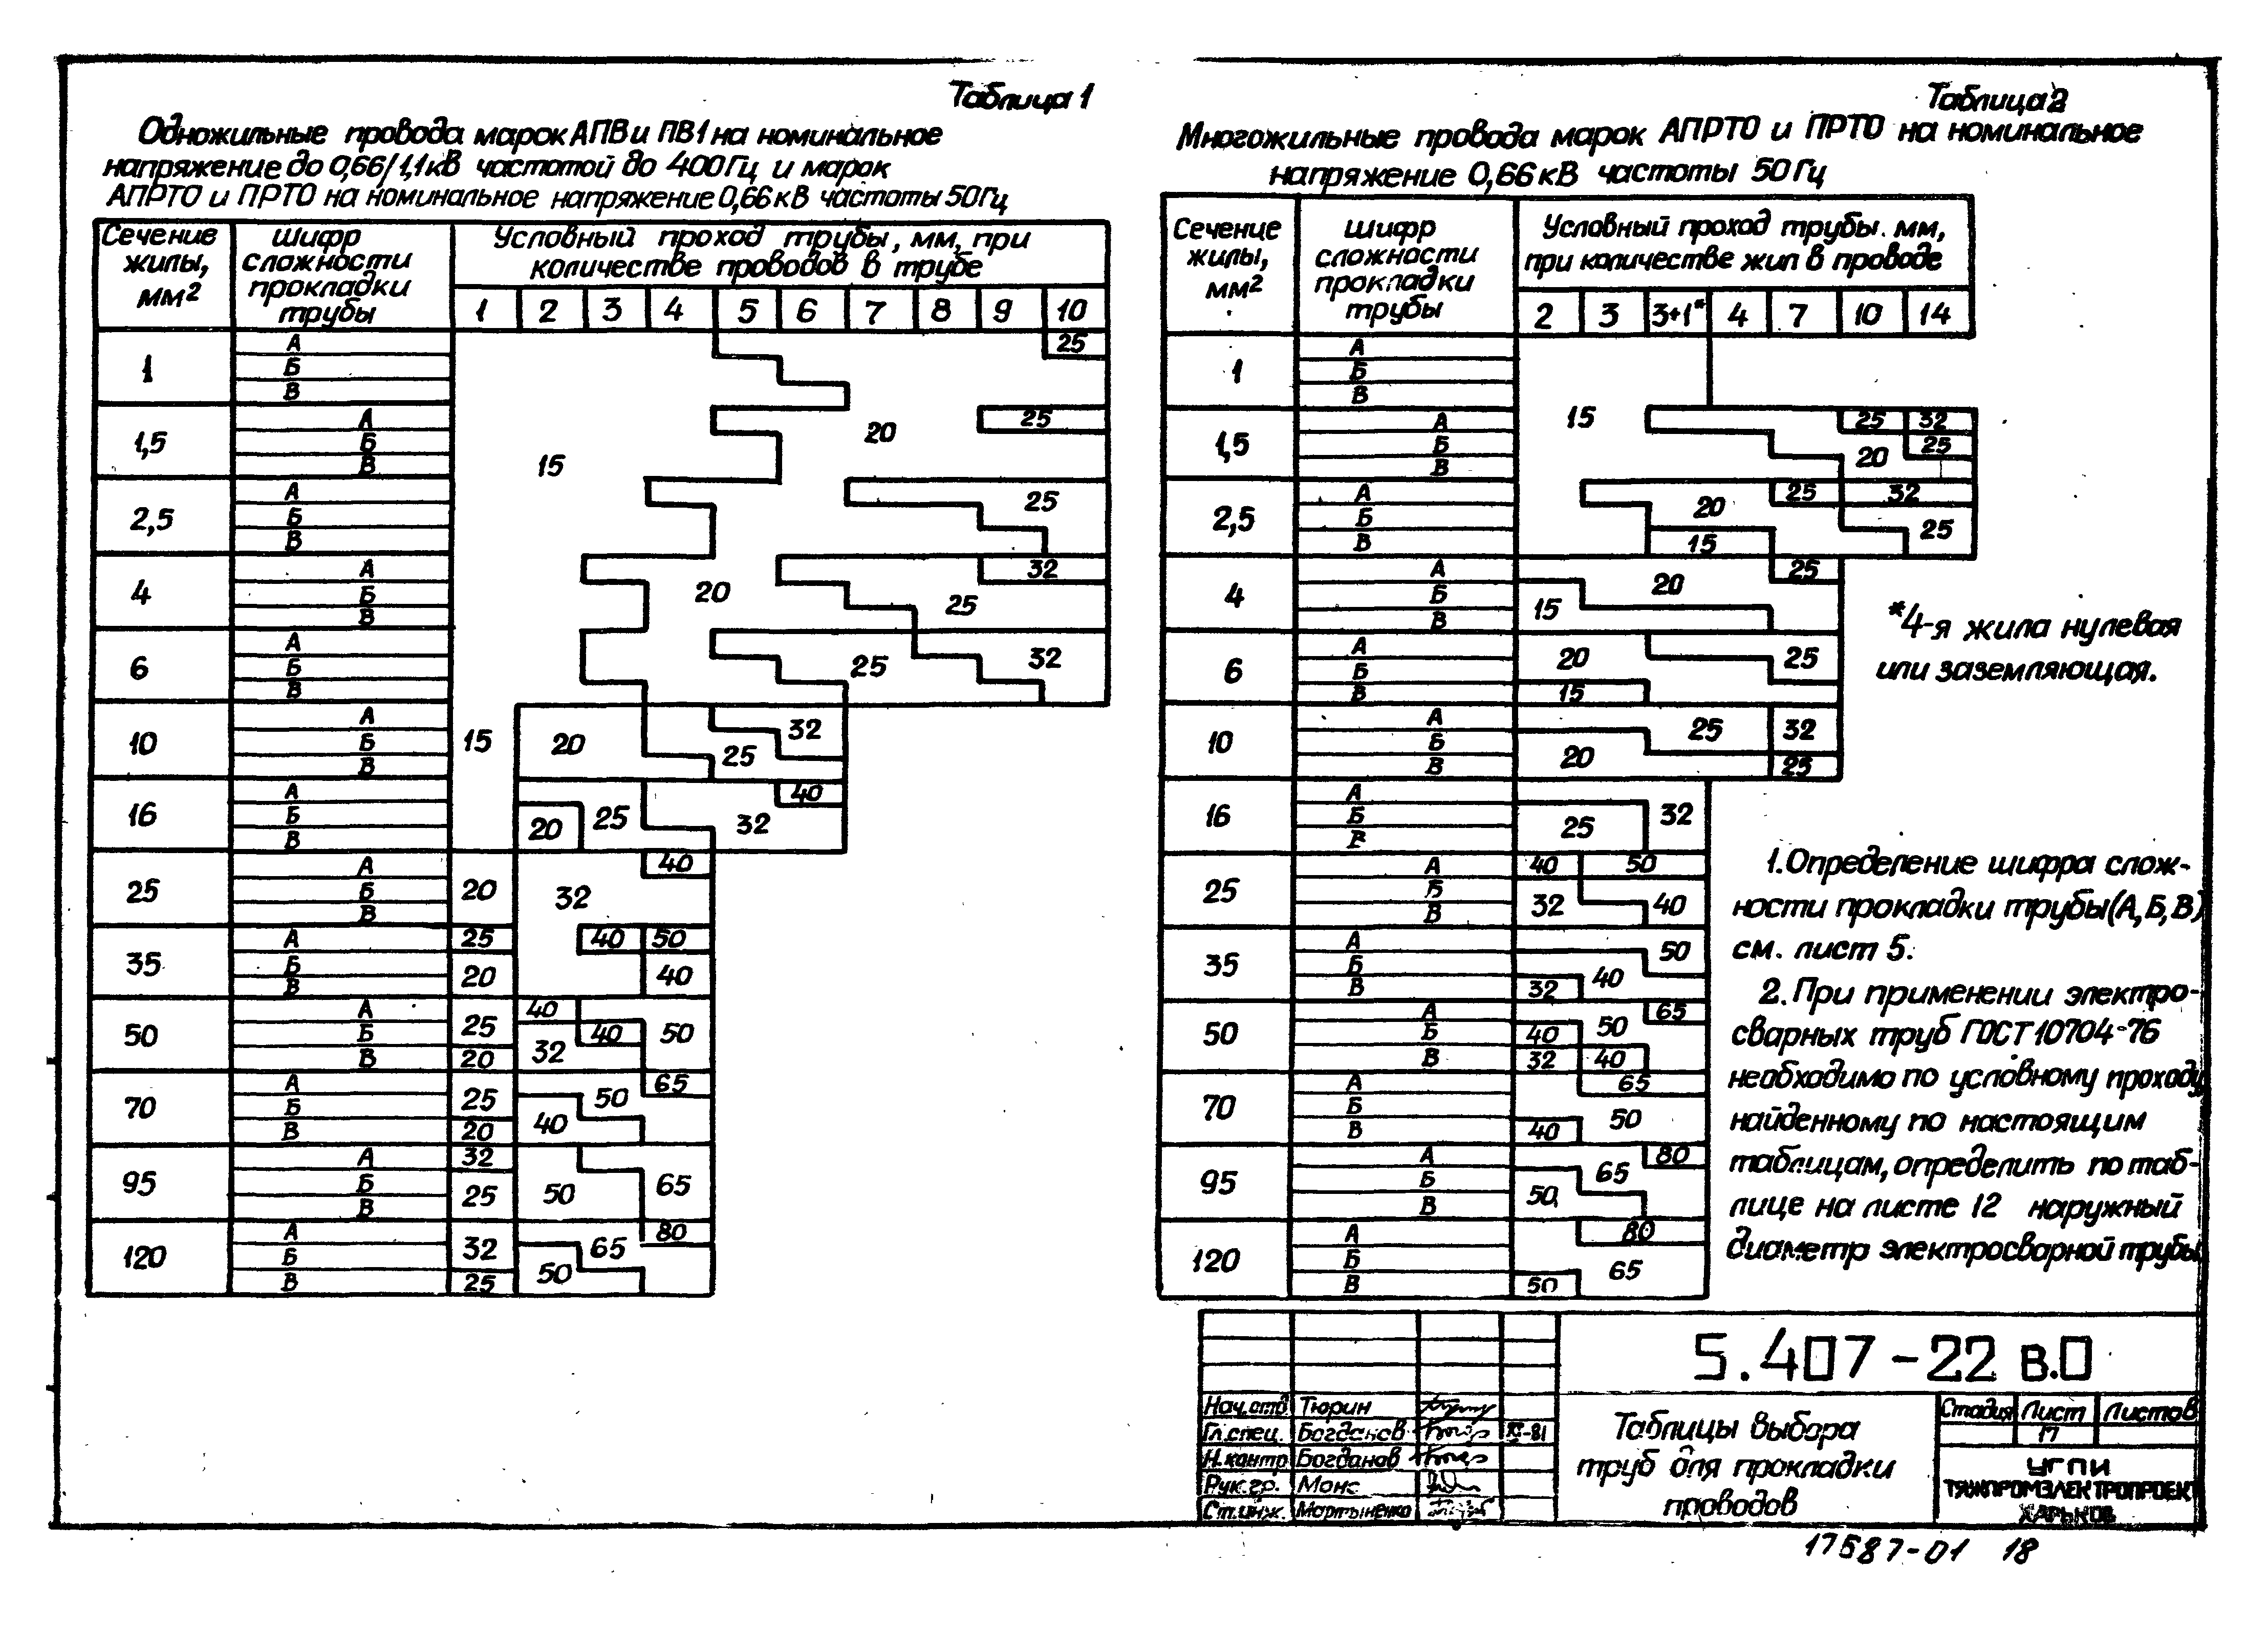 Таблица 1
Одножильные провода марок АПВ и ПВ1 на номинальное
напряжение до 0,66/1,1кВ частотой до 400Гц и марок
АПРТО и ПРТО на номинальное напряжение 0,66кВ частоты 50Гц
Сечение жилы, мм2
Шифр сложности прокладки трубы
Условный проход трубы, мм, при
количестве проводов в трубе
1 2 3 4 5 6 7 8 9 10
1 А Б В 25
1,5 А Б В 15 20 25
2,5 А Б В 25
4 А Б В 20 25 32
6 А Б В 25 32
10 А Б В 15 20 25 32
16 А Б В 20 25 32 40
25 А Б В 20 32 40
35 А Б В 25 40 50
20 40
50 А Б В 25 40 40 50
20 32
70 А Б В 25 50 65
20 40
95 А Б В 32
25 50 65
120 А Б В 32 65 80
25 50
Таблица 2
Многожильные провода марок АПРТО и ПРТО на номинальное
напряжение 0,66кВ частоты 50Гц
Сечение жилы, мм2
Шифр сложности прокладки трубы
Условный проход трубы. мм,
при количестве жил в проводе
2 3 3+1* 4 7 10 14
1 А Б В
1,5 А Б В 15 25 32
20 25
2,5 А Б В 20 25 32
15 25
4 А Б В 20 25
15
6 А Б В 20 25
15
10 А Б В 25 32
20 25
16 А Б В 25 32
25 А Б В 40 50
32 40
35 А Б В 50
32 40
50 А Б В 40 50 65
32 40
70 А Б В 65
40 50
95 А Б В 65 80
50
120 А Б В 80
50 65
*4-я жила нулевая
или заземляющая.
1.Определение шифра слож-
ности прокладки трубы(А,Б,В)
см. лист 5.
2.При применении электро-
сварных труб ГОСТ 10704-76
необходимо по условному проходу,
найденному по настоящим
таблицам, определить по таб-
лице на листе 12 наружный
диаметр электросварной трубы.
5.407-22 в.0
Нач.отд. Тюрин
Гл.спец. Богданов XI-81
Н.контр. Богданов
Рук.гр. Монс
Ст.инж. Мартыненко
Таблицы выбора
труб для прокладки
проводов
Стадия Лист Листов
17
УГПИ
ТЯЖПРОМЭЛЕКТРОПРОЕКТ
ХАРЬКОВ
17587-01 18